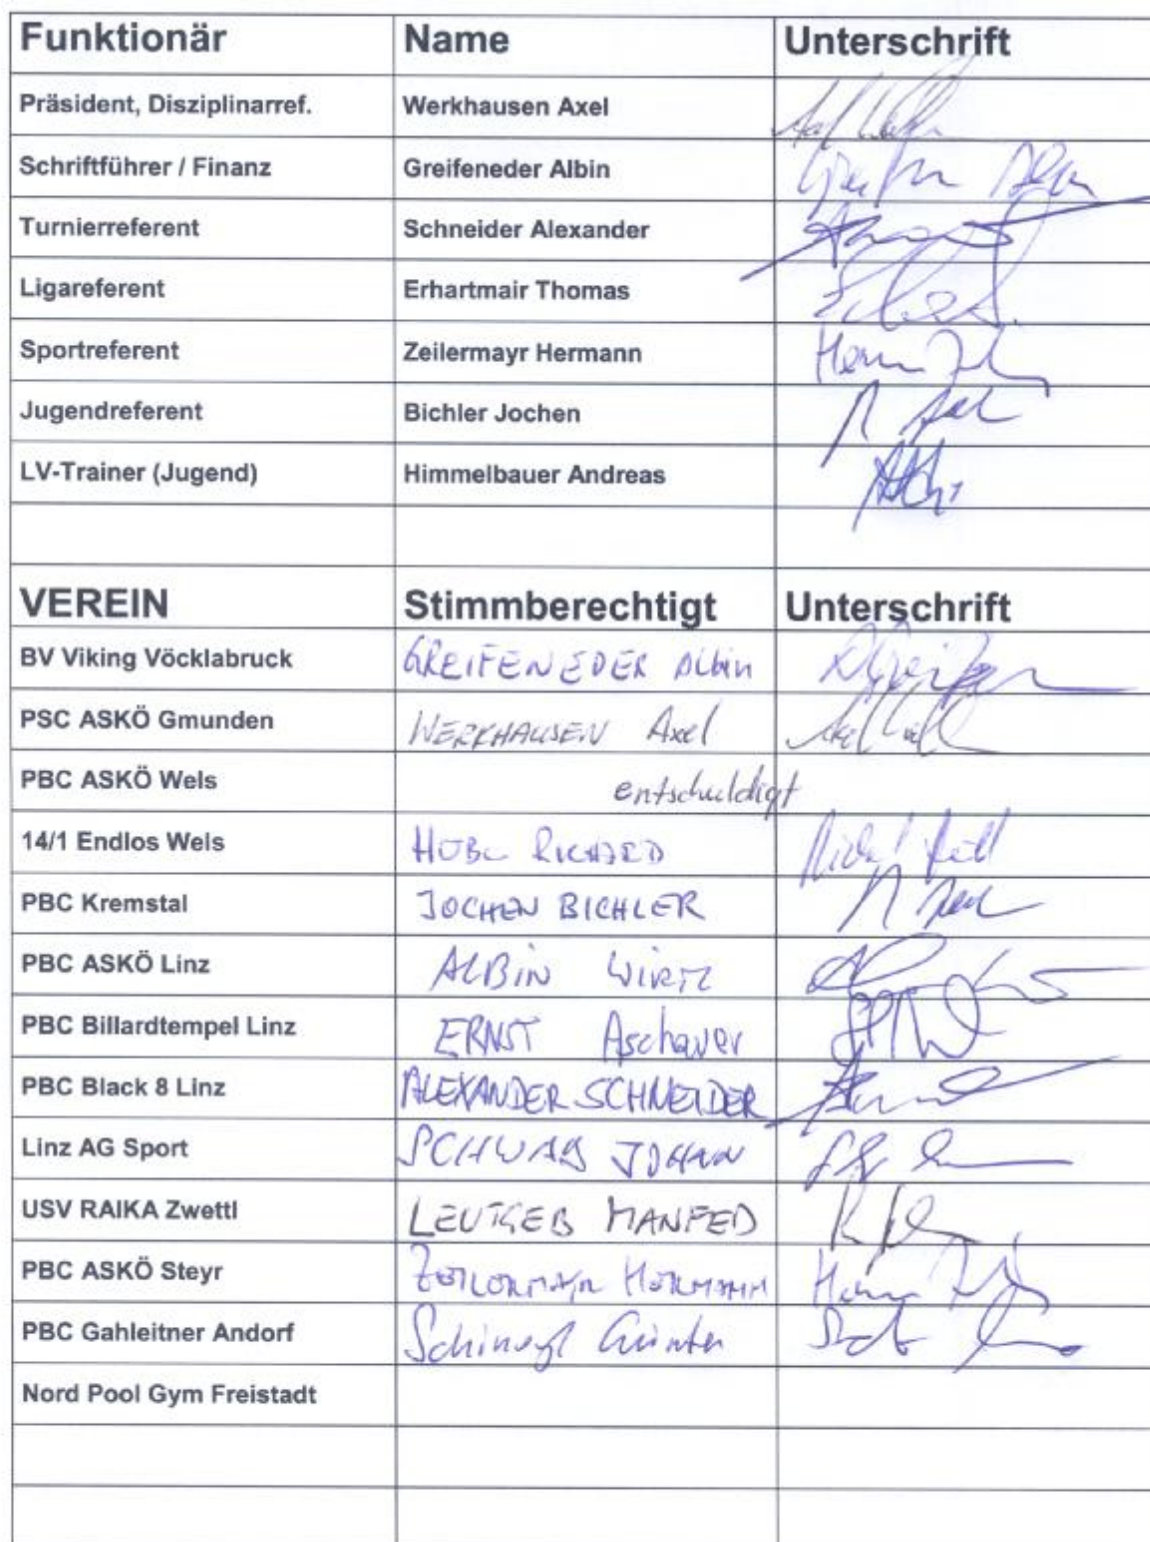 Funktionär Name Unterschrift
Präsident, Disziplinarref. Werkhausen Axel
Schriftführer / Finanz Greifeneder Albin
Turnierreferent Schneider Alexander
Ligareferent Erhartmair Thomas
Sportreferent Zeilermayr Hermann
Jugendreferent Bichler Jochen
LV-Trainer (Jugend) Himmelbauer Andreas
VEREIN Stimmberechtigt Unterschrift
BV Viking Vöcklabruck GREIFENEDER Albin
PSC ASKÖ Gmunden WERKHAUSEN Axel
PBC ASKÖ Wels entschuldigt
14/1 Endlos Wels RICHARD
PBC Kremstal JOCHEN BICHLER
PBC ASKÖ Linz ALBIN
PBC Billardtempel Linz ERNST Aschauer
PBC Black 8 Linz ALEXANDER SCHNEIDER
Linz AG Sport SCHWAB JOHAN
USV RAIKA Zwettl LEUTGEB MANFED
PBC ASKÖ Steyr ZEILERMAYR HERMANN
PBC Gahleitner Andorf Günter
Nord Pool Gym Freistadt